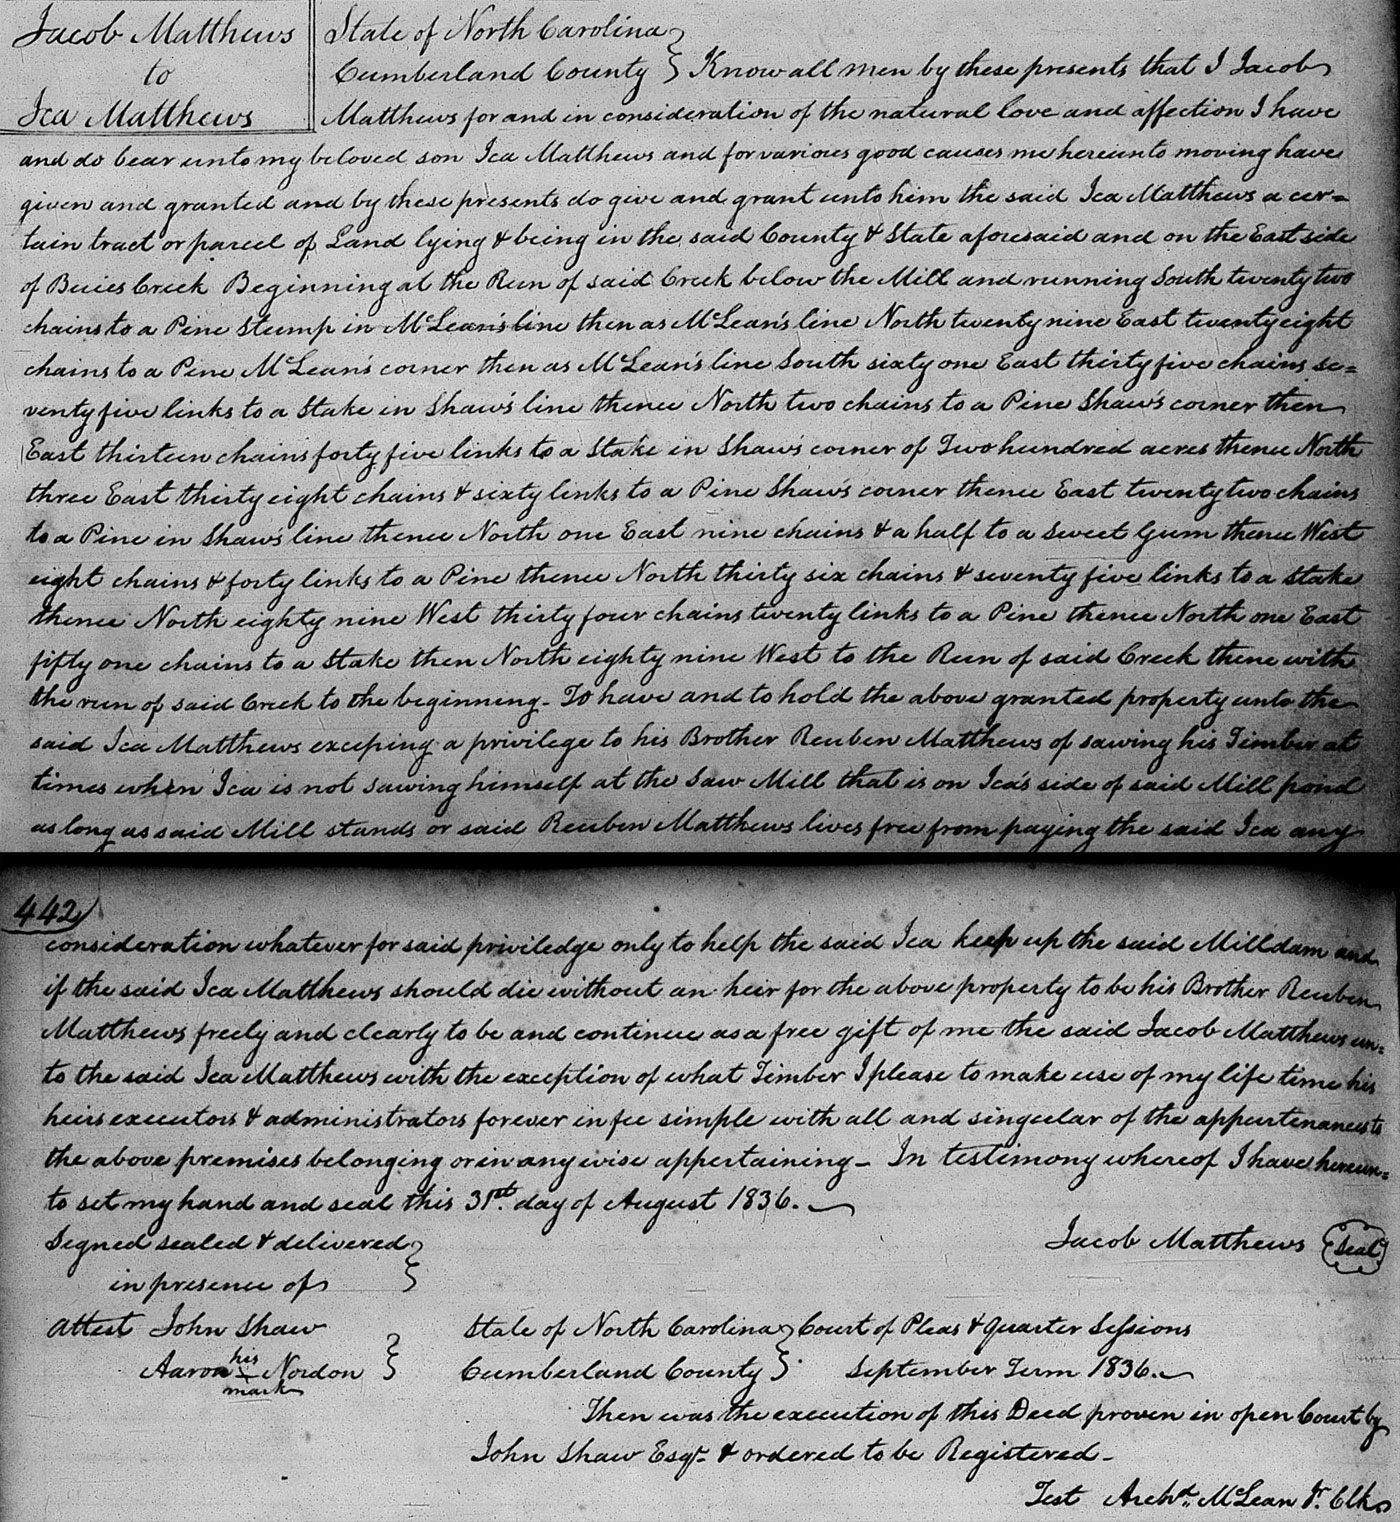 Jacob Matthews
to
Ica Matthews
State of North Carolina
Cumberland County } Know all men by these presents that I Jacob
Matthews for and in consideration of the natural love and affection I have
and do bear unto my beloved son Ica Matthews and for various good causes me hereunto moving have
given and granted and by these presents do give and grant unto him the said Ica Matthews a cer=
tain tract or parcel of Land lying & being in the said County & State aforesaid and on the East side
of Buies Creek Beginning at the Run of said Creek below the Mill and running South twenty two
chains to a Pine Stump in McLean's line then as McLean's line North twenty nine East twenty eight
chains to a Pine McLean's corner then as McLean's line South sixty one East thirty five chains se=
venty five links to a Stake in Shaw's line thence North two chains to a Pine Shaw's corner then
East thirteen chains forty five links to a Stake in Shaw's corner of Two hundred acres thence North
three East thirty eight chains & sixty links to a Pine Shaw's corner thence East twenty two chains
to a Pine in Shaw's line thence North one East nine chains & a half to a Sweet Gum thence West
eight chains & forty links to a Pine thence North thirty six chains & seventy five links to a Stake
thence North eighty nine West thirty four chains twenty links to a Pine thence North one East
fifty one chains to a Stake then North eighty nine West to the Run of said Creek thene with
the run of said Creek to the beginning - To have and to hold the above granted property unto the
said Ica Matthews exceping a privilege to his Brother Reuben Matthews of sawing his Timber at
times when Ica is not Sawing himself at the Saw Mill that is on Ica's side of said Mill pond
as long as said Mill stands or said Reuben Matthews lives free from paying the said Ica any
442
consideration whatever for said priviledge only to help the said Ica keep up the said Milldam and
if the said Ica Matthews should die without an heir for the above property to be his Brother Reuben
Matthews freely and clearly to be and continue as a free gift of me the said Jacob Matthews un=
to the said Ica Matthews with the exception of what Timber I please to make use of my life time his
heirs executors & administrators forever in fee simple with all and singular of the appurtenances to
the above premises belonging or in any wise appertaining - In testimony whereof I have hereun=
to set my hand and seal this 31st. day of August 1836.
Jacob Matthews (Seal)
Signed sealed & delivered
in presence of
Attest John Shaw
Aaron his x mark Nordon
State of North Carolina } Court of Pleas & Quarter Sessions
Cumberland County } September Term 1836.
Then was the execution of this Deed proven in open Court by
John Shaw Esqr. & ordered to be Registered -
Test Archd. McLean Jr. Clk